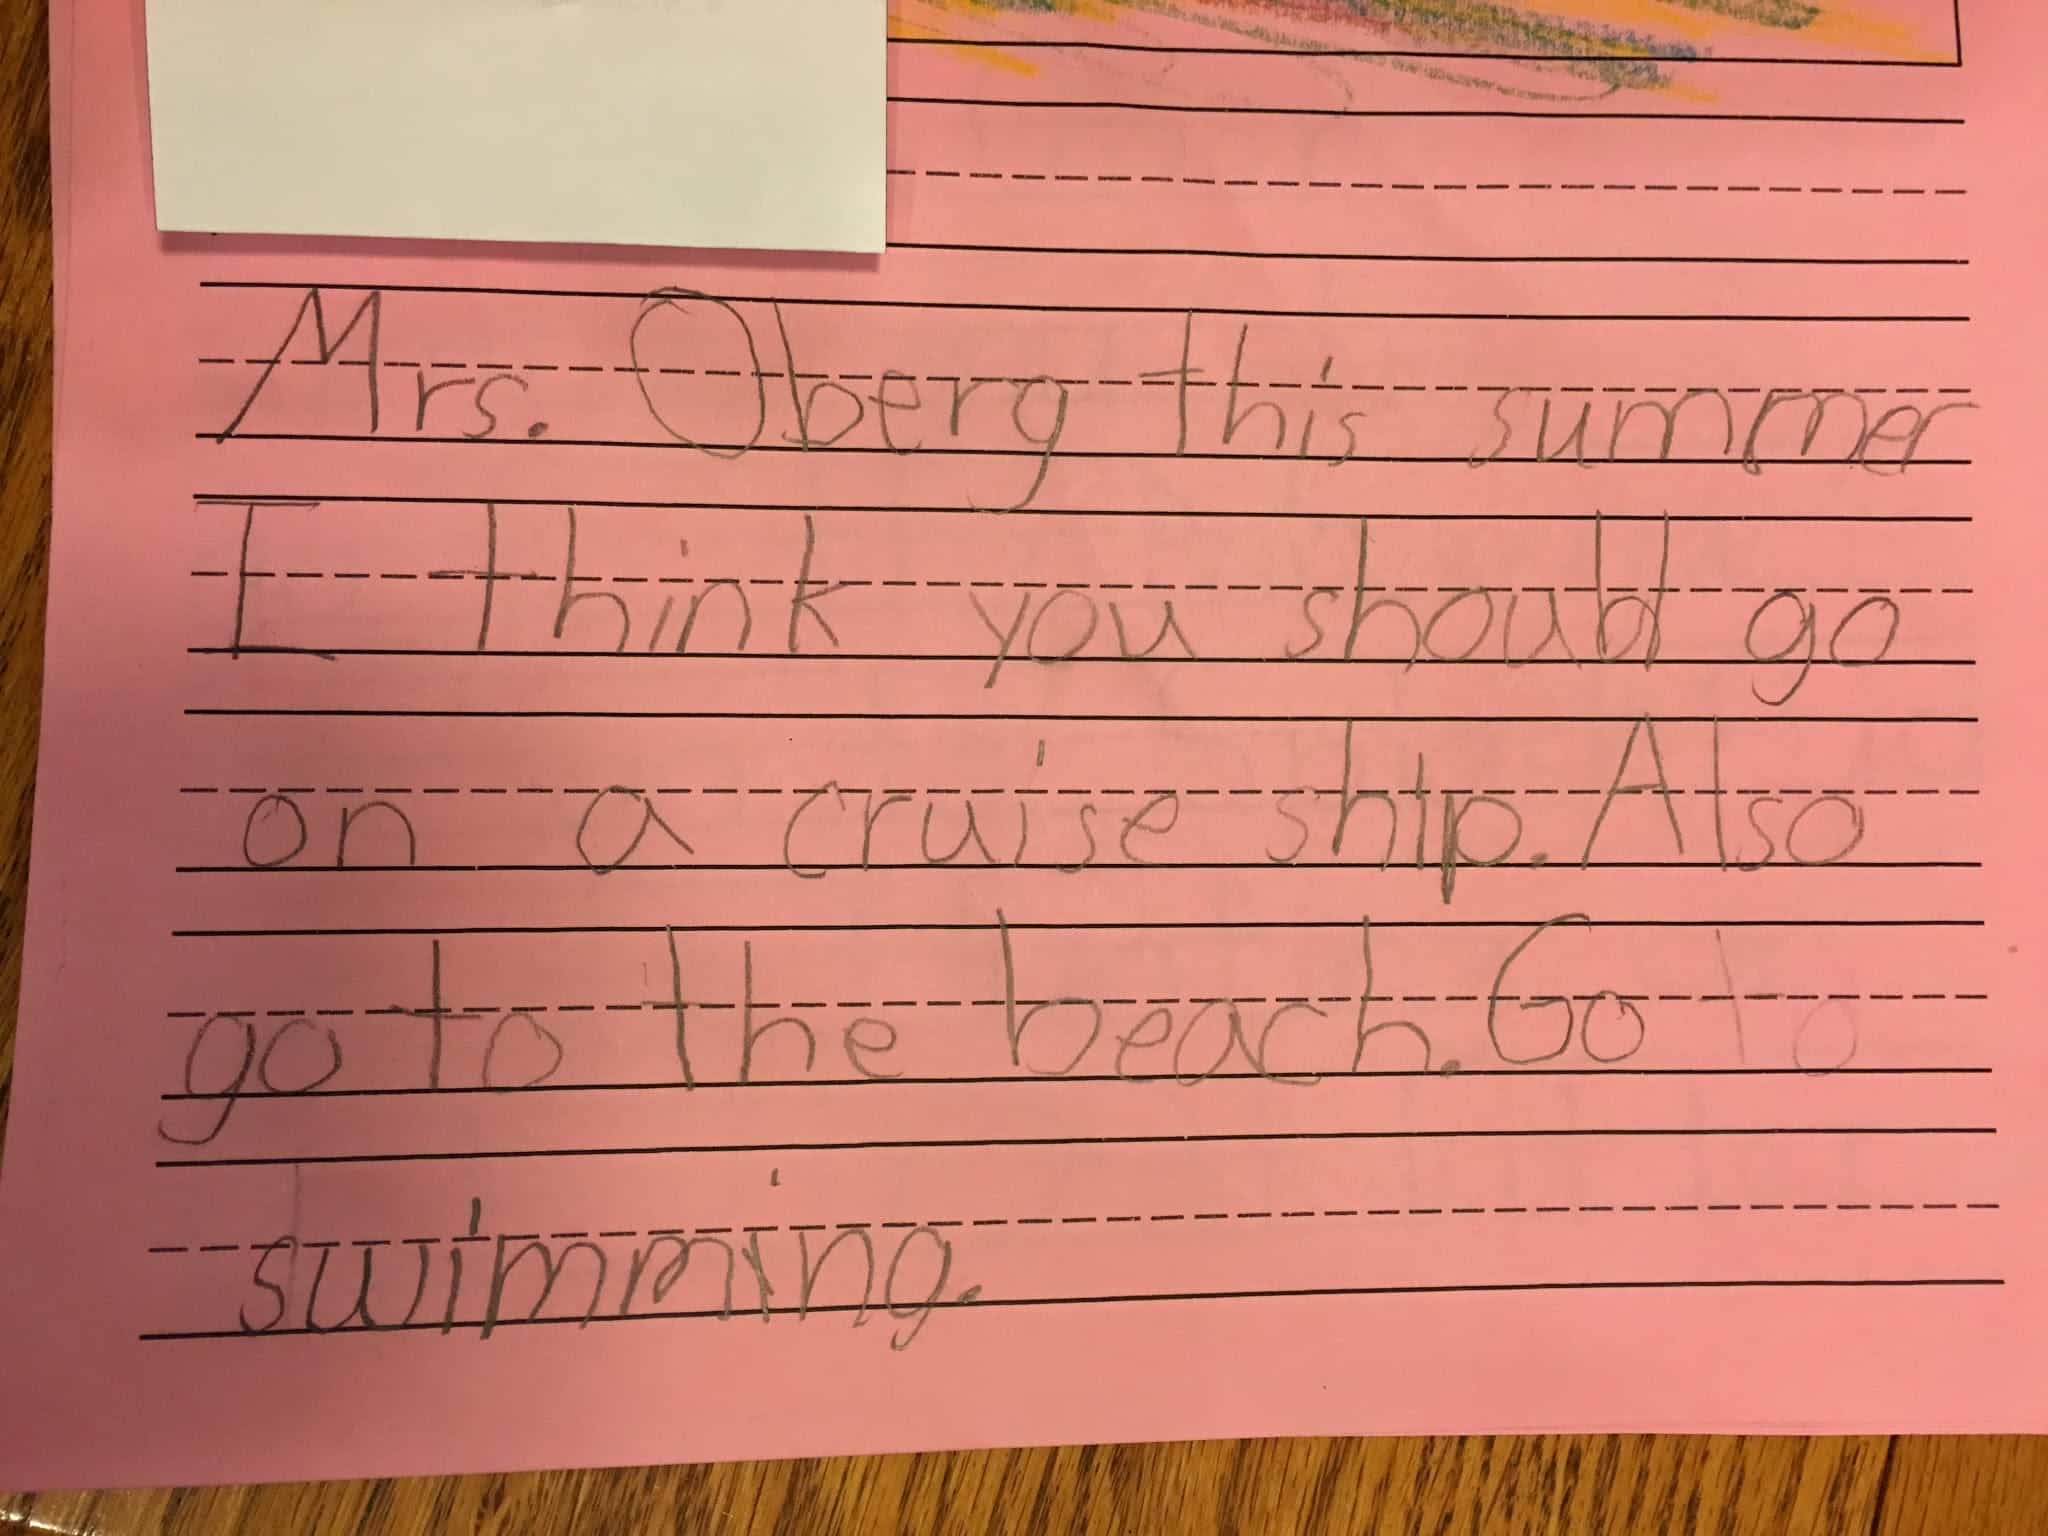 Mrs. Oberg this summer
I think you should go
on a cruise ship. Also
go to the beach. Go to
swimming.